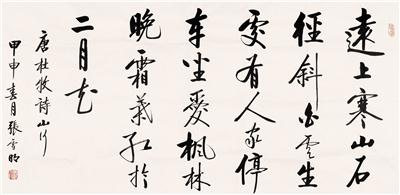 遠上寒山石
徑斜白雲生
處有人家停
車坐愛楓林
晚霜葉紅於
二月花
唐杜牧詩山行
甲申春月張